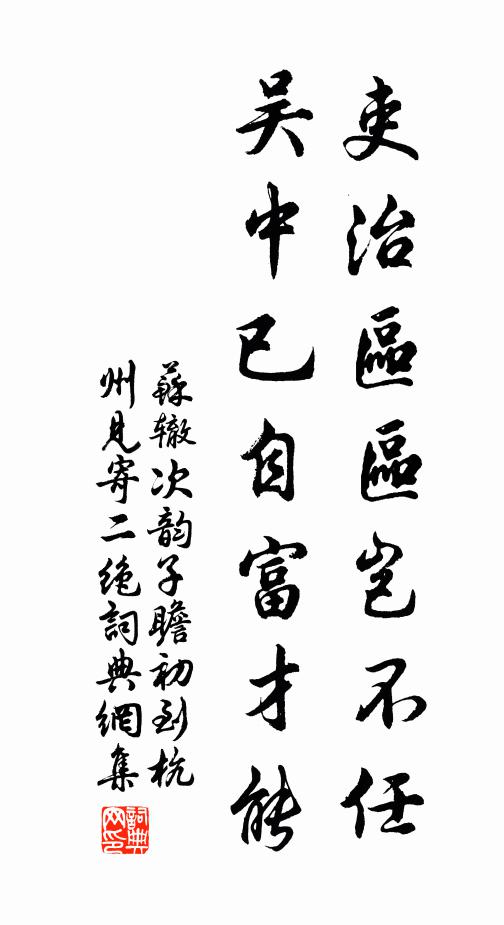 吏治區區豈不任
吳中已自富才能
蘇辙次韵子瞻初到杭
州見寄二绝詞典網集
詞典
网印